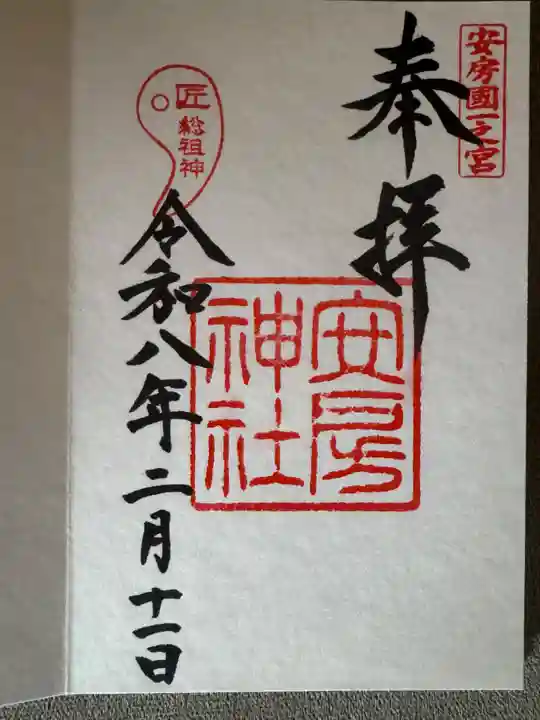 安房國一之宮
奉拝
安房神社
匠
総祖神
令和八年二月十一日